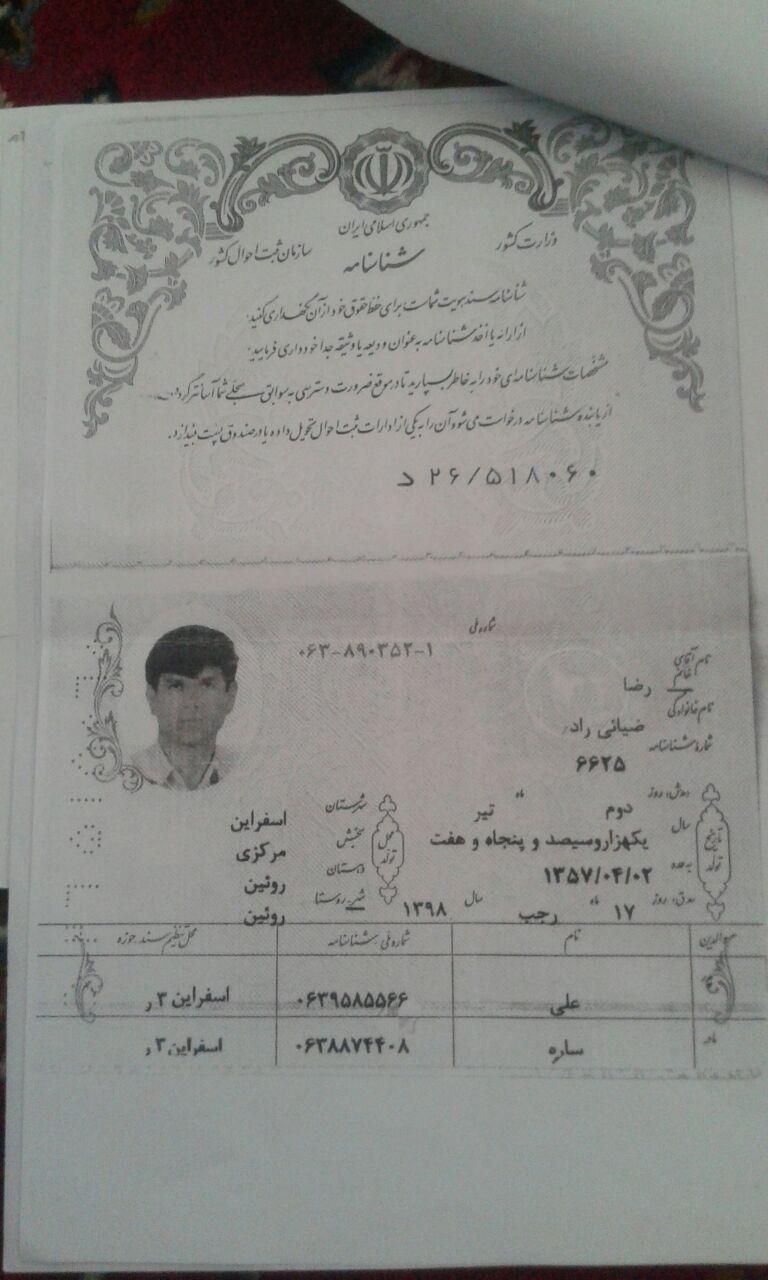 جمهوری اسلامی ایران
وزارت کشور
سازمان ثبت احوال کشور
شناسنامه
شناسنامه سند هویت شماست برای حفظ حقوق خود از آن نگهداری کنید.
از ارائه یا اخذ شناسنامه به عنوان ودیعه یا وثیقه جداً خودداری فرمایید.
مشخصات شناسنامه‌ای خود را به خاطر بسپارید تا در موقع ضرورت دسترسی به سوابق سجلی شما آسانتر گردد.
از یابنده شناسنامه درخواست می‌شود آن را به یکی از ادارات ثبت احوال تحویل داده یا در صندوق پست بیندازد.
د ۲۶/۵۱۸۰۶۰
شماره ملی
۰۶۳-۸۹۰۳۵۲-۱
نام آقای خانم رضا
نام خانوادگی ضیائی راد
شماره شناسنامه ۶۶۲۵
تاریخ تولد
روز دوم ماه تیر
سال یکهزاروسیصد و پنجاه و هفت
۱۳۵۷/۰۴/۰۲
روز ۱۷ ماه رجب سال ۱۳۹۸
محل تولد
شهرستان اسفراین
بخش مرکزی
دهستان روئین
شهر روستا روئین
نام شماره ملی شناسنامه محل تنظیم سند حوزه
علی ۰۶۳۹۵۸۵۵۶۶ اسفراین ۳ ر
مادر ساره ۰۶۳۸۸۷۴۴۰۸ اسفراین ۳ ر